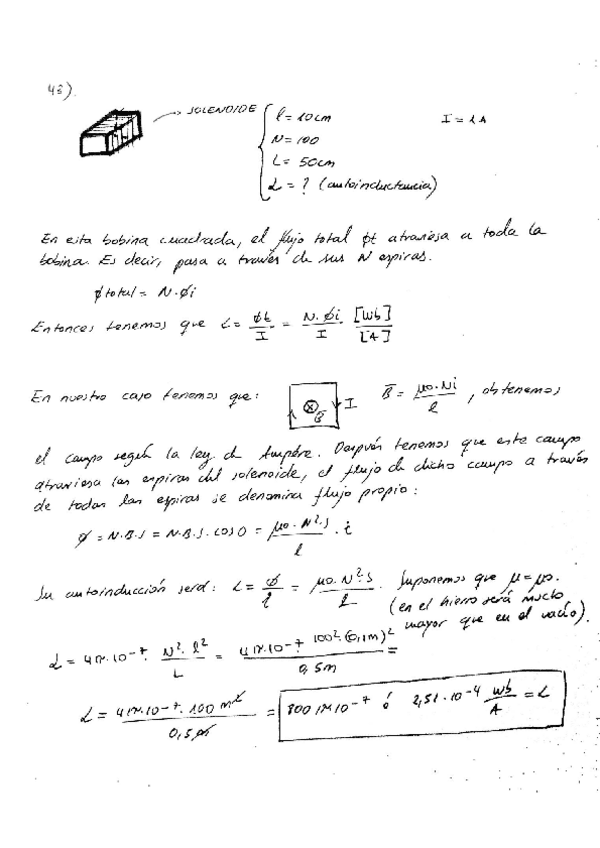 43).
SOLENOIDE
l = 10cm
I = 1A
N = 100
L = 50cm
L = ? (autoinductancia)
En esta bobina cuadrada, el flujo total ϕt atraviesa a toda la
bobina. Es decir, pasa a través de sus N espiras.
ϕtotal = N·ϕi
Entonces tenemos que L = ϕt/I = N·ϕi/I [Wb]/[A]
En nuestro caso tenemos que: B I B = μo·Ni/l , obtenemos
el campo según la ley de Ampère. Después tenemos que este campo
atraviesa las espiras del solenoide, el flujo de dicho campo a través
de todas las espiras se denomina flujo propio:
ϕ = N·B·S = N·B·S·cos0 = μo·N²·S/l · i
Su autoinducción será: L = ϕ/i = μo·N²·S/L. Suponemos que μ = μo.
(en el hierro será mucho
mayor que en el vacío).
L = 4π·10-7 · N²·l²/L = 4π·10-7 · 100²·(0,1m)²/0,5m =
L = 4π·10-7·100 m²/0,5m = 800π·10-7 ó 2,51·10-4 Wb/A = L